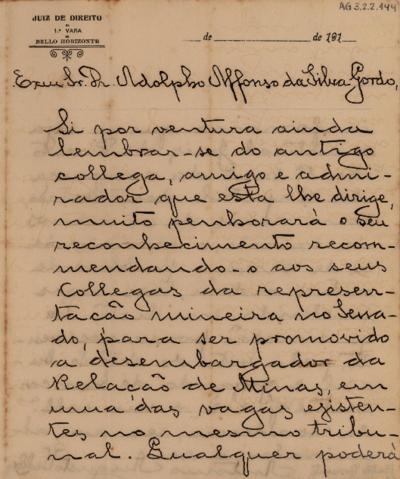 AG3.2.2.144
JUIZ DE DIREITO
DA
1.ª VARA
DE
BELLO HORIZONTE
de de 191
Exmo Sr. Dr. Adolpho Affonso da Silva Gordo,
Si por ventura ainda
lembrar-se do antigo
collega, amigo e admi-
rador que esta lhe dirige,
muito penhorará o seu
reconhecimento recom-
mendando-o aos seus
collegas da represen-
tacão mineira no Sena-
do, para ser promovido
a desembargador da
Relacão de Minas, em
uma das vagas existen-
tes no mesmo tribu-
nal. Qualquer poderá